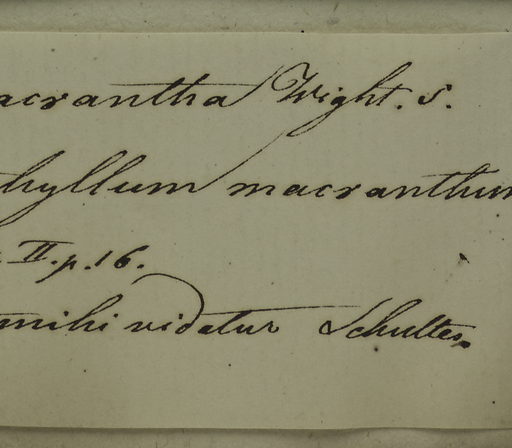 acrantha Wight. S.
hyllum macranthum
II. p. 16.
mihi videtur Schultes.